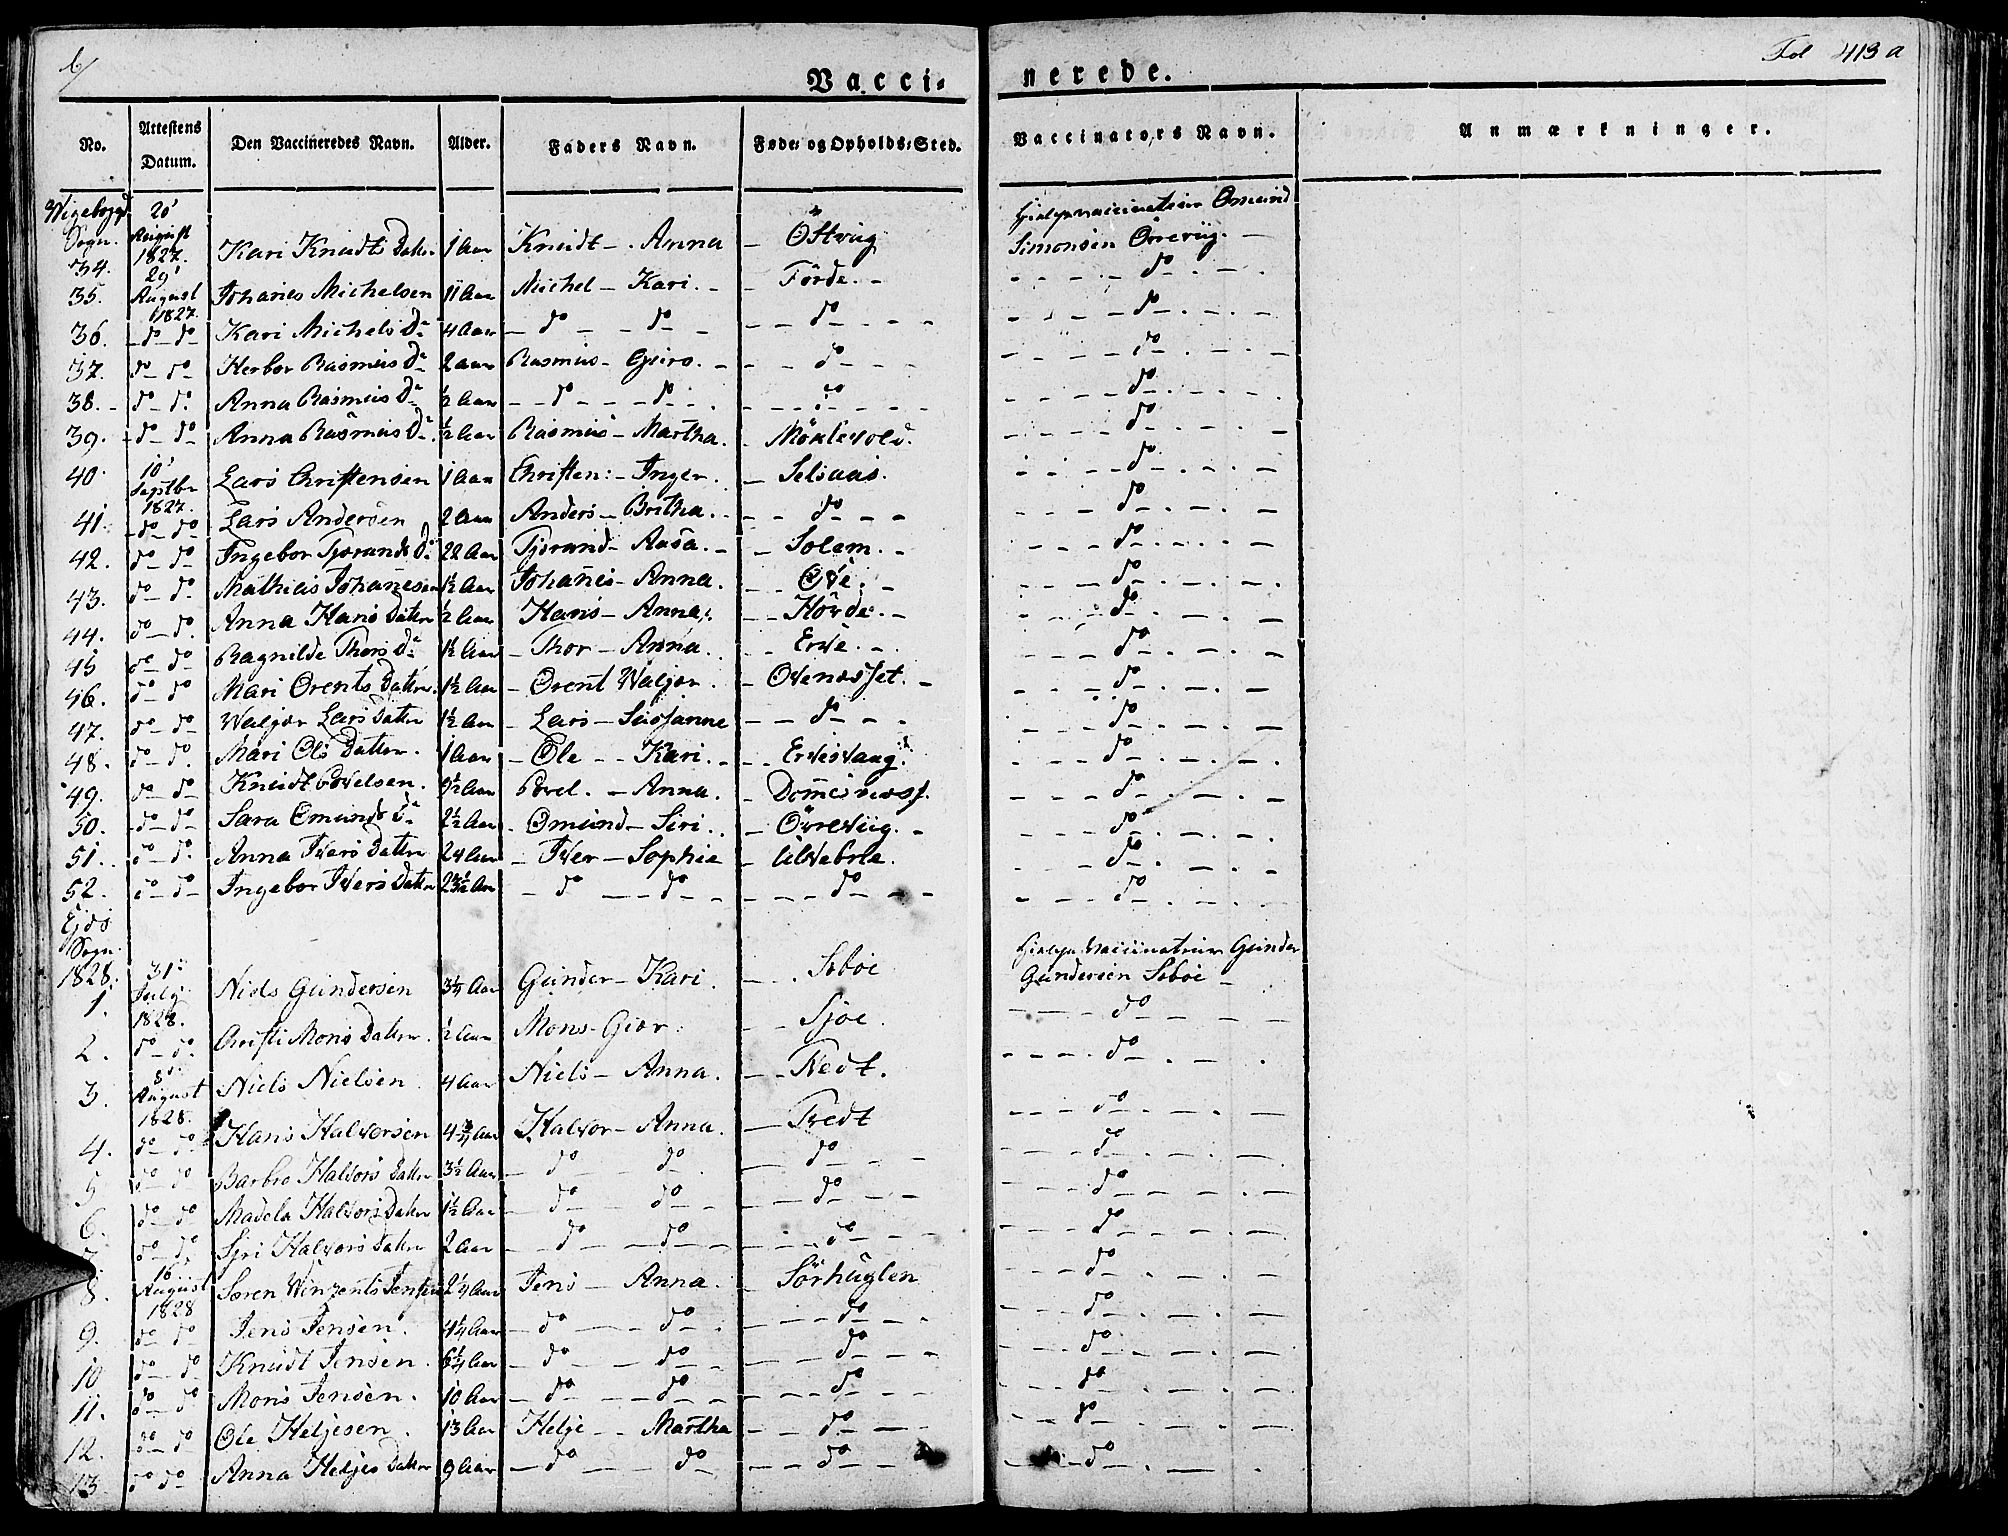 Fol 413 a
Vacci= nerede.
No. Attestens Datum. Den Vaccineredes Navn. Alder. Faders Navn. Føde= og Opholds=Sted. Vaccinators Navn. Anmærkninger.
Sogn.
34. 20' August 1827. Kari Knudts Datter. 1 Aar Knudt -. Anna - Östvug Hielpevaccinateur Omund Simonsen Örreviig. -
35. 29' August 1827. Johanes Michelsen 11 Aar Michel - Kari. - - Förde. - - - do -
36. - do - do Kari Michels Dr 4 Aar - do - - do - - - do - - - - do -
37. do - do Herbor Rasmus Dr 2 Aar Rasmus - Guro. - - - do - - - - do -
38. - do - do. Anna Rasmus Dr ½ Aar - - do - - - do - - - do - - - - do -
39. - do - do Anna Rasmus Dr. ½ Aar Rasmus - Martha. - Möklevold. - - do -
40. 10' Septbr 1827. Lars Christensen 1 Aar Christen: - Inger. - Selsaas. - - do -
41. - do - do Lars Andersen 2 Aar Anders - Britha. - - - do - - - - do -
42. do - do Ingebor Tjorands Dr 22 Aar Tjorand - Aasa. - - Solem. - - - do -
43. do - do Mathias Johanesen 1½ Aar Johanes - Anna. - - Øve. - - - do -
44. do - do. Anna Hans Datter ½ Aar Hans - Anna. - - Hörde. - - - do -
45 do - do Ragnilde Thors Dr 1½ Aar - Thor - Anna. - - Erve. - - - do -
46. do - do Mari Orents Datter. 1½ Aar - Orent Waljer. - Ovenæsset. - - - do -
47. do - do Waljer Lars Datter 1½ Aar - Lars - Susanne - - do - - - - do -
48. do - do. Mari Ols Datter. 1 Aar - Ole - - Kari. - - - Ervesvaag. - - do -
49. do - do Knudt Povelsen. 9½ Aar Povel. - Anna. - - - do -
50. - do - do Sara Omunds Dr 2½ Aar - Omund - Siri. - Örreviig. - - - do -
51. do - do. Anna Ivers Datter 24 Aar - Iver - Sophie - - - do -
52. do - do Ingebor Ivers Datter - do - - do - - - - do - - - - do -
Sogn.
1828.
1. 31' Julj 1828. Niels Gundersen 3¼ Aar Gunder - Kari. - - Seboe Hielpevaccinateur Gunder Gundersen Seboe -
2. do - do. Christi Mons Datter. ½ Aar Mons - Giør. - - Sjoe. - - do -
3. 8' August 1828. Niels Nielsen 4 Aar Niels - Anna. - - Tvedt. - - do -
4. do - do. Hans Halvorsen Halvor - Anna. - Tvedt - - do -
5 do - do Barbro Halvors Datter 3½ Aar - do - - do - - - do - - - - do -
6. do - do Madela Halvors Datter 1½ Aar - do - - do - - - do - - - - do -
7. do - do. Sjri Halvors Datter 2 Aar - do - - do - - - do - - - - do -
8. 16' August 1828 Søren Winzents Jensen 2¼ Aar Jens - Anna. - Sörhuglen - - do -
9. do - do Jens Jensen. 4¼ Aar - do - - do - - - do - - - - do -
10 do - do Knudt Jensen. 6¼ Aar - do - - do - - - do - - - - do -
11. do - do Mons Jensen. 10 Aar - do - - do - - - do - - - - do -
12. do - do Ole Heljesen. 13 Aar Helje - - Martha - - do - - - - do -
13 do - do Anna Heljes Datter 9 Aar - do - - do - - - do - - - - do -